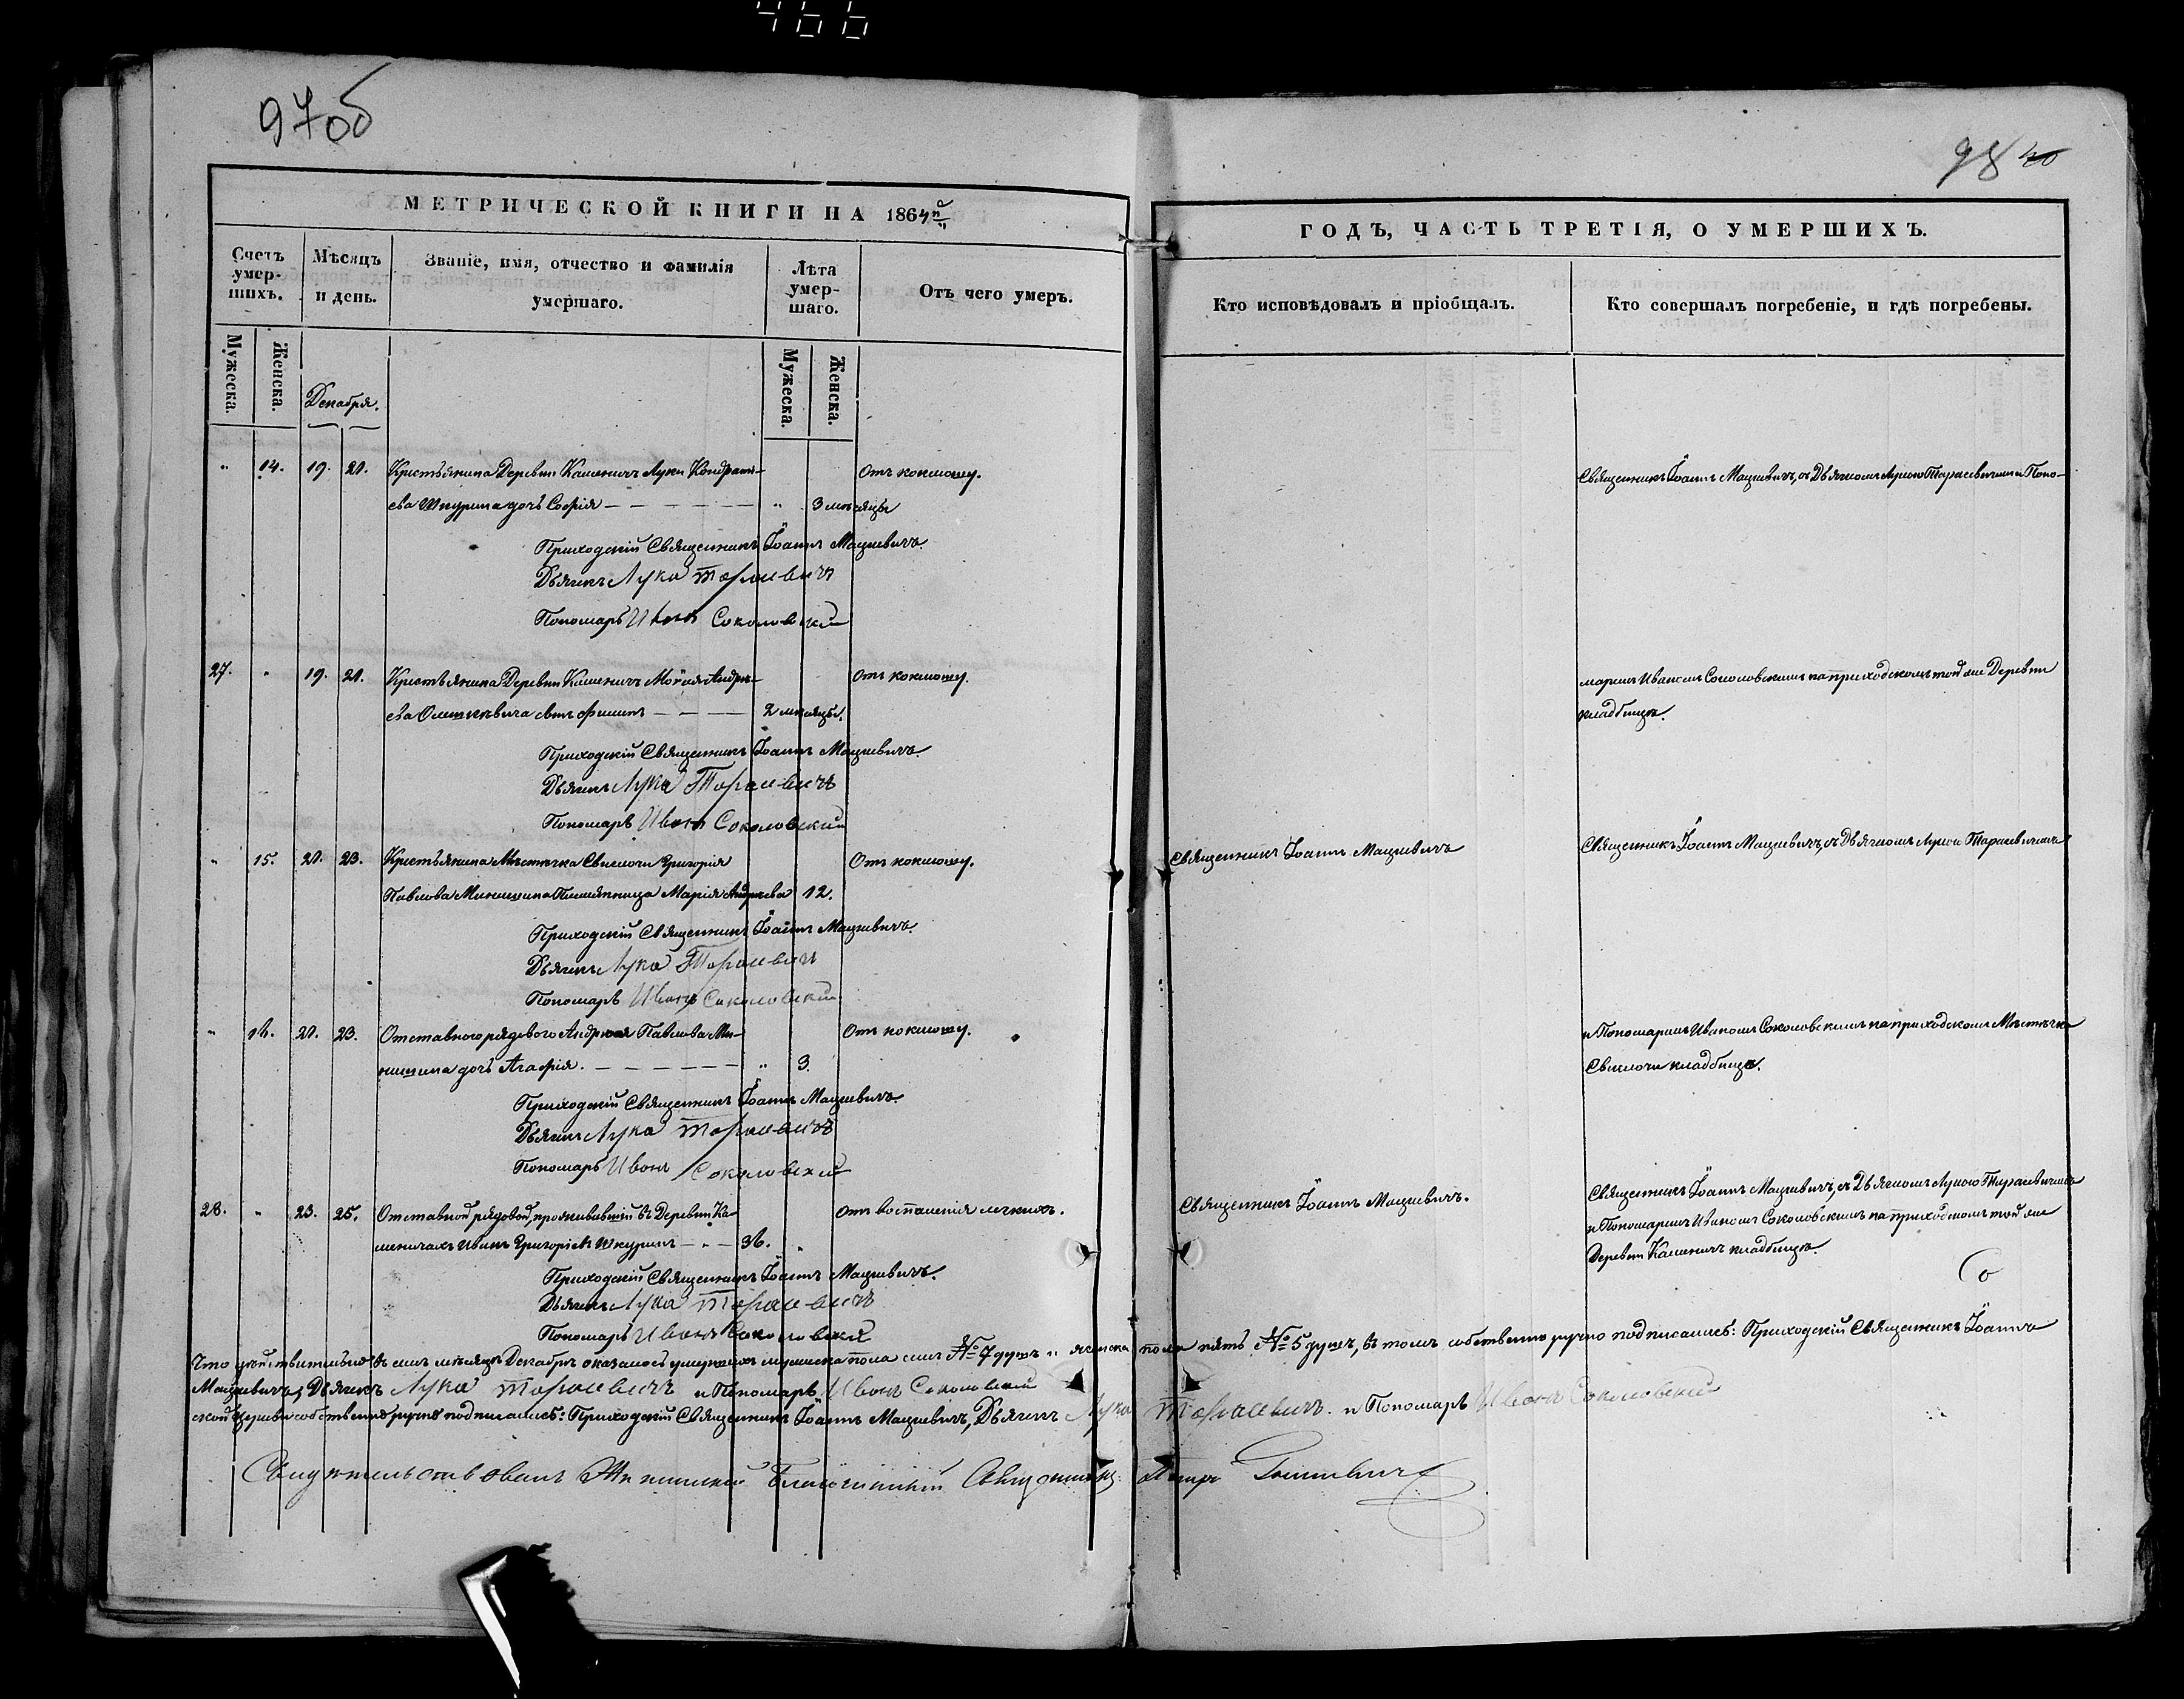 466
97об
98 40
МЕТРИЧЕСКОЙ КНИГИ НА 1864й
ГОДЪ, ЧАСТЬ ТРЕТІЯ, О УМЕРШИХЪ.
Счетъ умер-шихъ.
Мѣсяцъ и день.
Званіе, имя, отчество и фамилія умершаго.
Лѣта умер-шаго.
Отъ чего умеръ.
Кто исповѣдовалъ и пріобщалъ.
Кто совершалъ погребеніе, и гдѣ погребены.
Мужеска.
Женска.
Декабря.
Мужеска.
Женска.
" 14. 19. 21. Крестьянина Деревни Каменичъ Луки Кондрать- Отъ коклюшу.
ева Шкурина дочь Софія " 3 мѣсяцы
Священникъ Іоаннъ Мацкевичъ, съ Дьячкомъ Лукою Тарасевичемъ и Поно-
Приходскій Священникъ Іоаннъ Мацкевичъ.
Дьячекъ Лука Тарасевичъ
Пономарь Иванъ Соколовскій
27. " 19. 21. Крестьянина Деревни Каменичъ Моѵсея Андре- Отъ коклюшу.
ева сынъ Филипъ 2 мѣсяцы.
маремъ Иваномъ Соколовскимъ на приходскомъ той же Деревни
кладбищѣ.
Приходскій Священникъ Іоаннъ Мацкевичъ.
Дьячекъ Лука Тарасевичъ
Пономарь Иванъ Соколовскій
" 15. 21. 23. Крестьянина Мѣстечка Свислочи Григорія Отъ коклюшу.
Павлова Минишина Племянница Марія Андреева 12.
Священникъ Іоаннъ Мацкевичъ
Священникъ Іоаннъ Мацкевичъ, съ Дьячкомъ Лукою Тарасевичемъ
Приходскій Священникъ Іоаннъ Мацкевичъ.
Дьячекъ Лука Тарасевичъ
Пономарь Иванъ Соколовскій
" 16. 21. 23. Отставного рядового Андрея Павлова Ми- Отъ коклюшу.
нишина дочь Агафія. " 3.
и Пономаремъ Иваномъ Соколовскимъ на приходскомъ Мѣстечка
Свислочи кладбищѣ.
Приходскій Священникъ Іоаннъ Мацкевичъ.
Дьячекъ Лука Тарасевичъ
Пономарь Иванъ Соколовскій
28. " 23. 25. Отставной рядовой, проживавшій въ Деревни Ка- Отъ воспаленія легкихъ.
меничахъ Иванъ Григоріевъ Шкуринъ 36. "
Священникъ Іоаннъ Мацкевичъ.
Священникъ Іоаннъ Мацкевичъ, съ Дьячкомъ Лукою Тарасевичемъ
и Пономаремъ Иваномъ Соколовскимъ на приходскомъ той же
Деревни Каменичъ кладбищѣ.
Приходскій Священникъ Іоаннъ Мацкевичъ.
Дьячекъ Лука Тарасевичъ
Пономарь Иванъ Соколовскій
Что дѣйствительно въ семъ мѣсяцѣ Декабрѣ оказалось умершихъ мужеска пола семь № 7 душъ и женска пола пять № 5 душъ, въ томъ собственно ручно подписались: Приходскій Священникъ Іоаннъ
Мацкевичъ, Дьячекъ Лука Тарасевичъ и Пономарь Иванъ Соколовскій
ской церкви собственно ручно подписались: Приходскій Священникъ Іоаннъ Мацкевичъ, Дьячекъ Лука Тарасевичъ и Пономарь Иванъ Соколовскій
Свидѣтельствовалъ Благочинный Священникъ Петръ